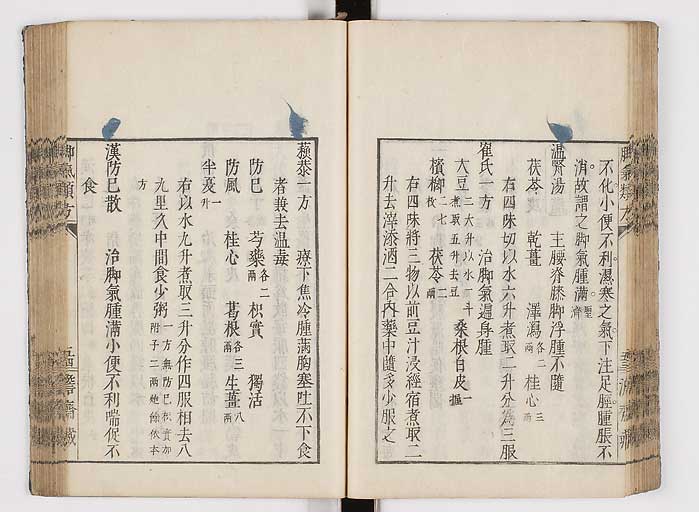 不化小便不利濕寒之氣下注足脛腫脹不
消故謂之脚氣腫滿聖濟
温腎湯　主腰脊膝脚浮腫不隨
茯苓　乾薑　澤瀉各二兩　桂心三兩
右四味切以水六升煮取二升分為三服
崔氏一方　治脚氣遍身腫
大豆二大升以水一斗煮取五升去豆　桑根白皮一握
檳榔二七枚　茯苓二兩
右四味將三物以前豆汁浸經宿煮取二
升去滓添酒二合內藥中隨多少服之
蘇恭一方　療下焦冷腫滿胸塞吐不下食
者兼去温毒
防巳　芍藥各二兩　枳實　獨活
防風　桂心　葛根各三兩　生薑八兩
半夏一升
右以水九升煮取三升分作四服相去八
九里久中間食少粥一方無防巳枳實加附子二兩炮餘依本
方
漢防巳散　治脚氣腫滿小便不利喘促不
食
脚氣類方